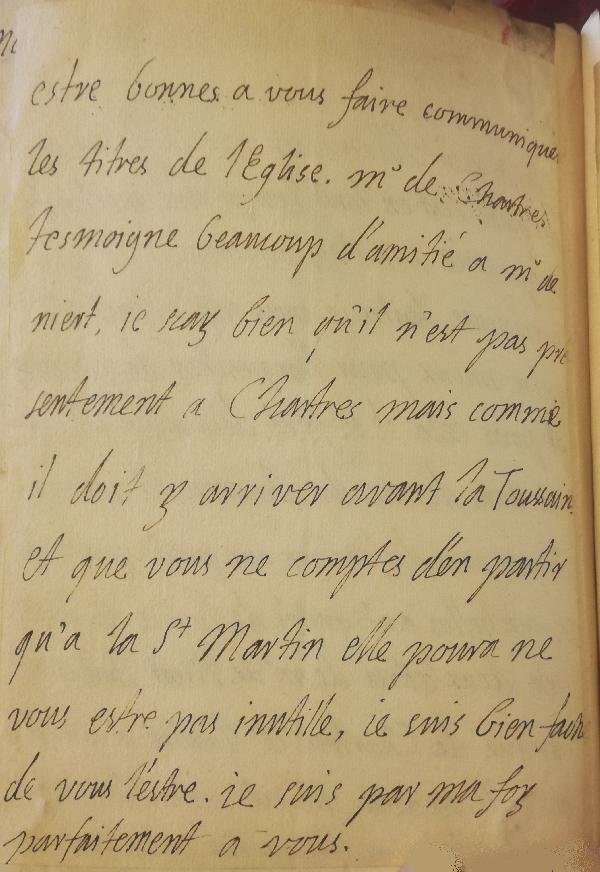 estre bonnes a vous faire communiquer
les titres de l'Eglise. mr de Chartres
tesmoigne beaucoup d'amitié a mr de
niert, ie scay bien qu'il n'est pas pre
sentement a Chartres mais comme
il doit y arriver avant la Toussain
et que vous ne comptes d'en partir
qu'a la St Martin elle poura ne
vous estre pas inutille, ie suis bien
de vous l'estre. ie suis par ma foy
parfaitement a vous.